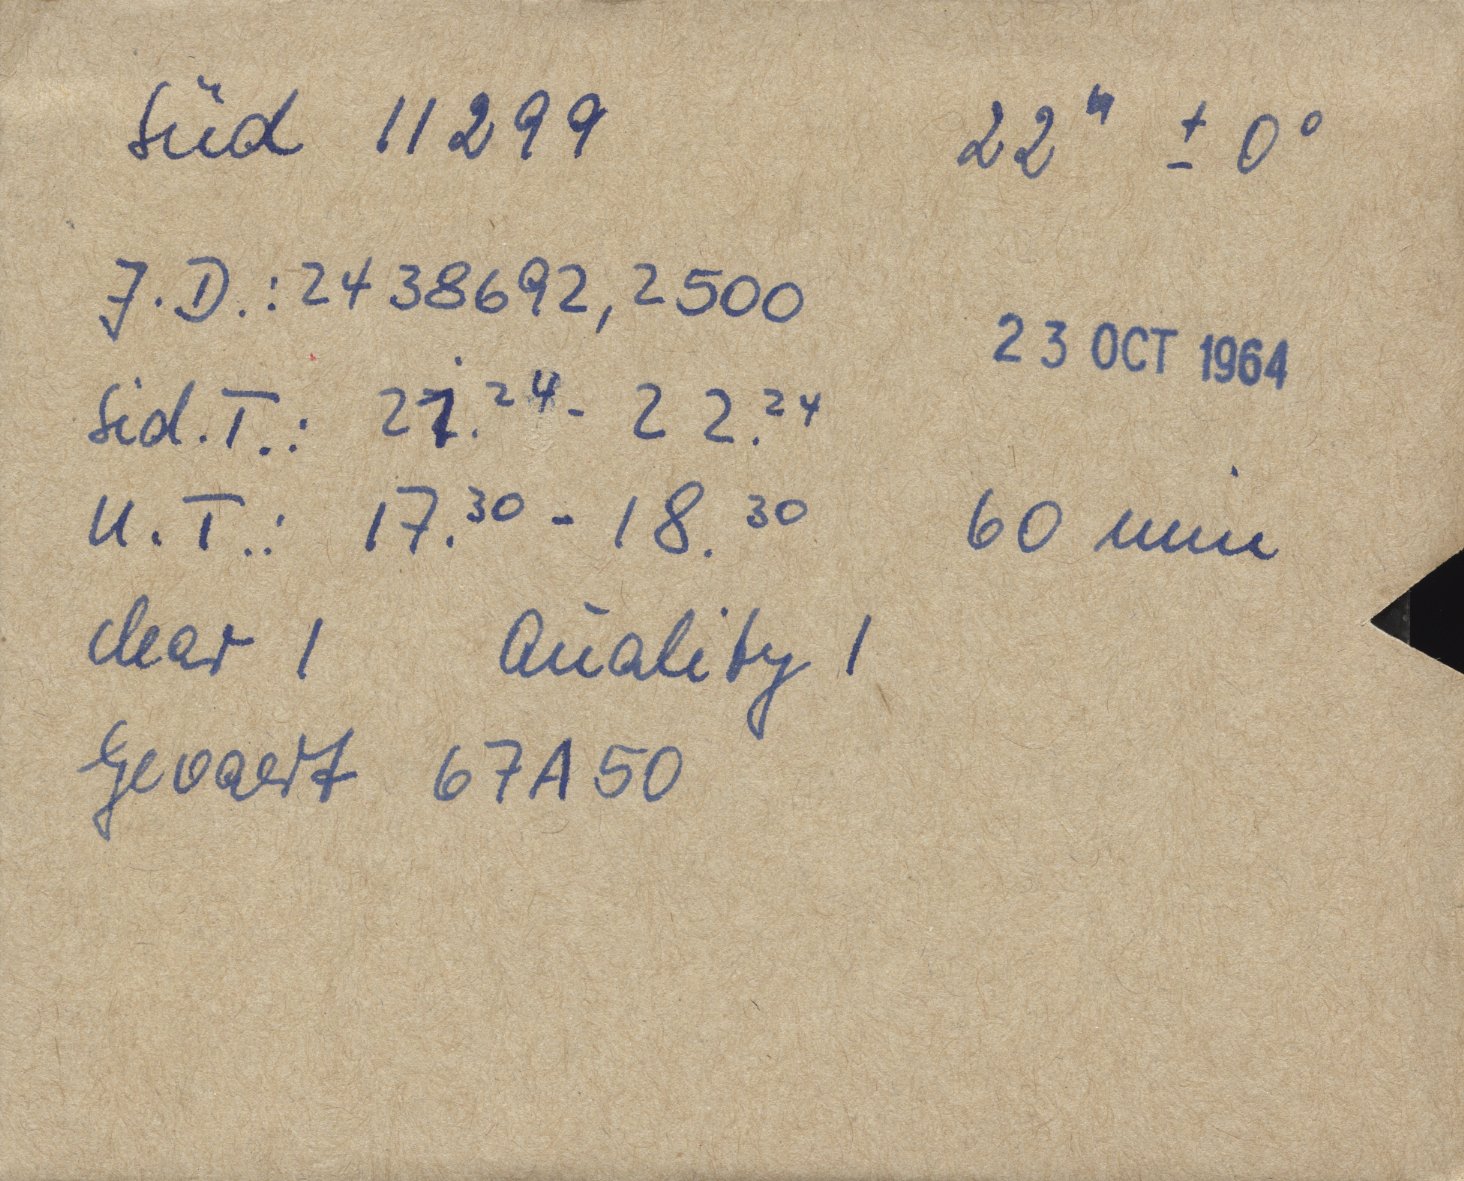 Süd 11299 22ʰ ± 0°
J.D.: 2438692,2500
23 OCT 1964
Sid.T.: 21.²⁴ - 22.²⁴
U.T.: 17.³⁰ - 18.³⁰ 60 min
clear 1 Quality 1
Gevaert 67A50